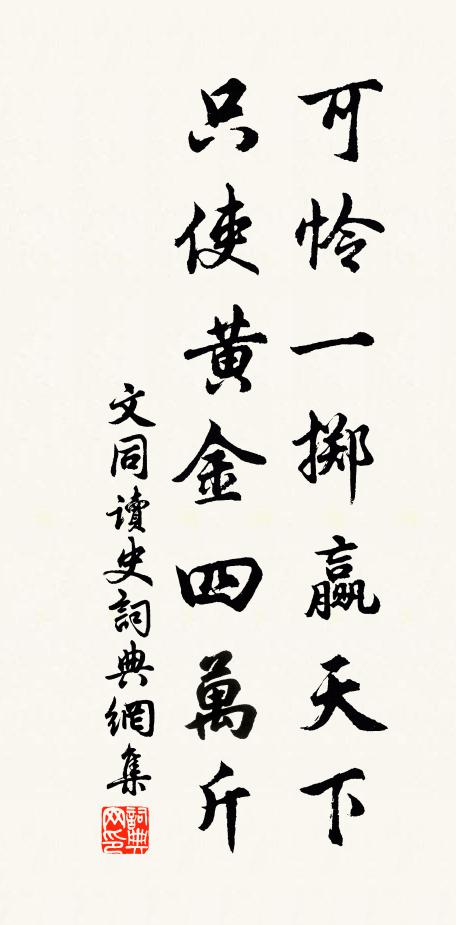 可怜一掷赢天下
只使黄金四萬斤
文同讀史詞典網集
詞典網印